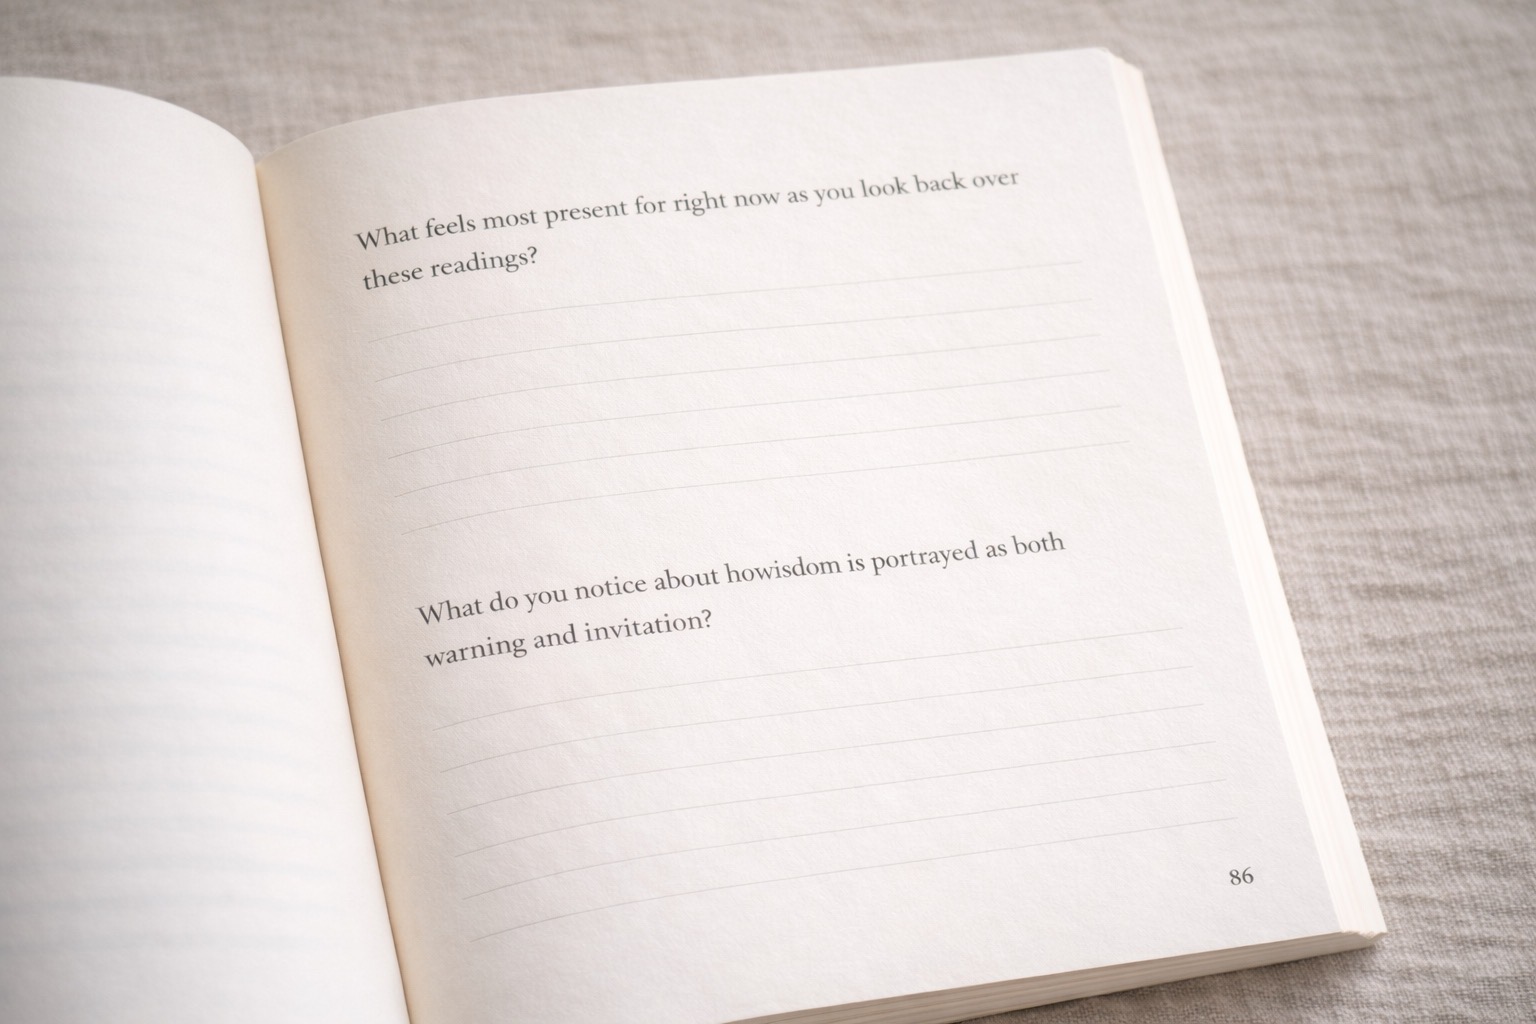 What feels most present for right now as you look back over
these readings?
What do you notice about howisdom is portrayed as both
warning and invitation?
86